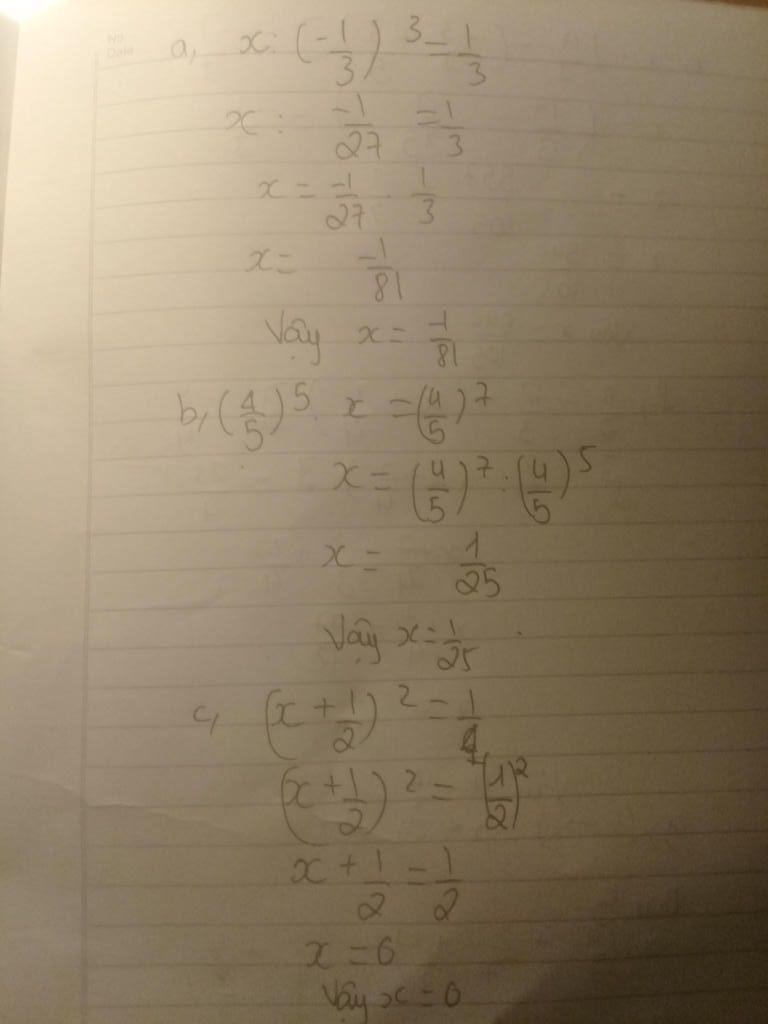 No.
Date
a, x : (-1/3)^3 = 1/3
x : -1/27 = 1/3
x = -1/27 . 1/3
x = -1/81
Vậy x = -1/81
b, (4/5)^5 . x = (4/5)^7
x = (4/5)^7 : (4/5)^5
x = 1/25
Vậy x = 1/25
c, (x + 1/2)^2 = 1/4
(x + 1/2)^2 = (1/2)^2
x + 1/2 = 1/2
x = 0
Vậy x = 0